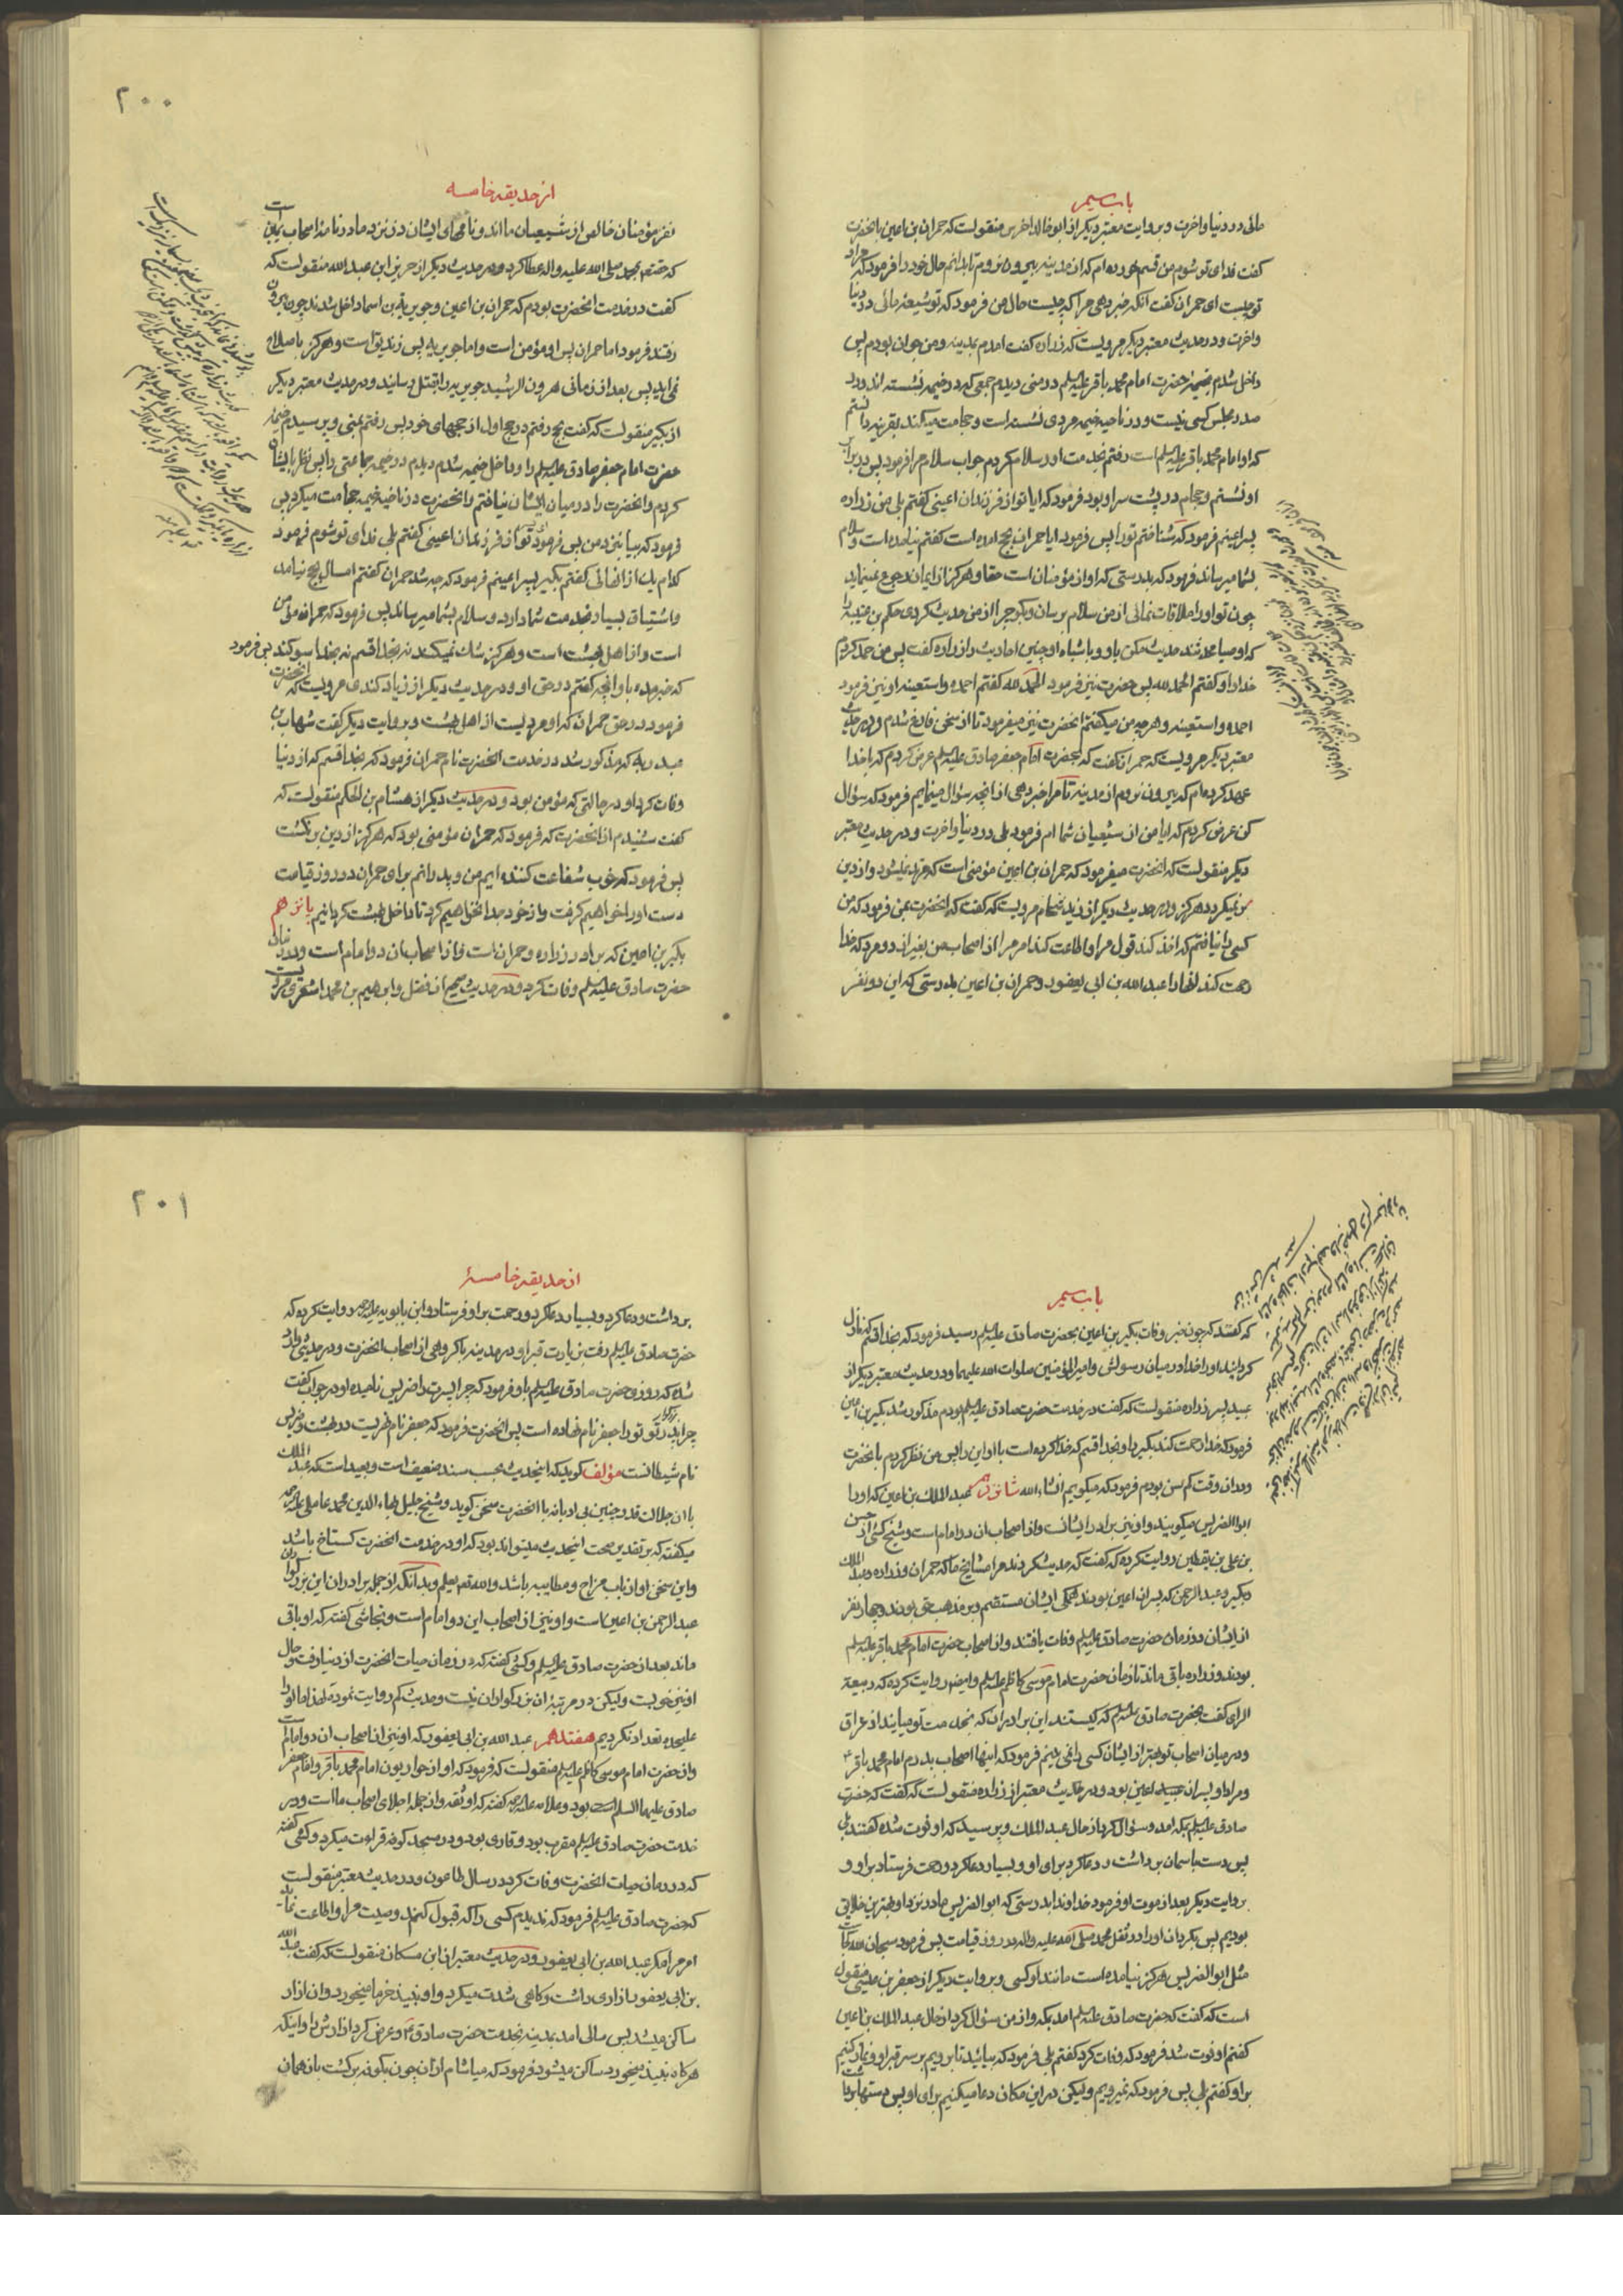 باب سیم
مائی در دنیا و اخرت و بروایت معتبر دیکر از ابو خالد اخرس منقولست که حمران بن اعین بانحضرت
کفت فدای تو شوم من قسم خورده ام که از مدینه بیرون نروم تا بدانم حال خود را فرمود که مراد
تو چیست ای حمران کفت انکه خبر دهی مرا که چیست حال من فرمود که تو شیعهٔ مائی در دنیا
واخرت و در حدیث معتبر دیکر مرویست که زراره کفت امدم بمدینه و من جوان بودم پس
داخل شدم بخیمهٔ حضرت امام محمد باقر علیه السلم در منی دیدم جمعی که در خیمه نشسته اند و در
صدر مجلس کسی نیست و در ناحیه خیمه مردی نشسته است و حجامت میکند بقرینه دانستم
که او امام محمد باقر علیه السلم است رفتم بخدمت او و سلام کردم جواب سلام مرا فرمود پس در برابر
او نشستم و حجام در پشت سر او بود فرمود که ایا تو از فرزندان اعینی کفتم بلی من زراره
پسر اعینم فرمود که شناختم تو را پس فرمود ایا حمران بحج امده است کفتم نیامده است و سلام
بشما میرساند فرمود که بدرستی که او از مؤمنان است حقا و هرکز از ایمان رجوع نمینماید
چون تو او را ملاقات نمائی از من سلام برسان و بکو چرا از من حدیث کردی حکم بن عتیبه را
که اوصیا محدثند حدیث مکن باو و باشباه او چنین احادیث را زراره کفت پس من حمد کردم
خدا را و کفتم الحمد لله پس حضرت نیز فرمود الحمد لله کفتم احمده واستعینه او نیز فرمود
احمده واستعینه و هر چه من میکفتم انحضرت نیز میفرمود تا از سخن فارغ شدم و در حدیث
معتبر دیکر مرویست که حمران کفت که بحضرت امام جعفر صادق علیه السلم عرض کردم که باخدا
عهد کرده ام که بیرون نروم از مدینه تا مرا خبر دهی از انچه سؤال مینمایم فرمود که سؤال
کن عرض کردم که ایا من از شیعیان شما ام فرمود بلی در دنیا و اخرت و در حدیث معتبر
دیکر منقولست که انحضرت میفرمود که حمران بن اعین مؤمنی است که مرتد نمیشود و از دین
بر نمیکردد هرکز و در حدیث دیکر از زید شحام مرویست که کفت که انحضرت بمن فرمود که من
کسی را نیافتم که اخذ کند قول مرا و اطاعت کند امر مرا از اصحاب من بغیر از دو مرد که خدا
رحمت کند انها را عبد الله بن ابی یعفور و حمران بن اعین بدرستی که این دو نفر
۲۰۰
از حدیقه خامسه
نفر مؤمنان خالص از شیعیان ما اند و نامهای ایشان در نزد ما در نامهٔ اصحاب یمین است
که حقتعم بمحمد صلی الله علیه واله عطا کرد و در حدیث دیکر از حریز ابن عبد الله منقولست که
کفت در خدمت انحضرت بودم که حمران بن اعین و جویریة بن اسما داخل شدند چون بیرون
رفتند فرمود اما حمران پس او مؤمن است و اما جویریه پس زندیق است و هرکز باصلاح
نمی اید پس بعد از زمانی هرون الرشید جویریه را بقتل رسانید و در حدیث معتبر دیکر
از بکیر منقولست که کفت بحج رفتم در حج اول از حجهای خود پس رفتم بمنی و پرسیدم خیمهٔ
حضرت امام جعفر صادق علیه السلم را و داخل خیمه شدم دیدم در خیمه جماعتی را پس نظر بایشان
کردم و انحضرت را در میان ایشان نیافتم و انحضرت در ناحیه خیمه حجامت میکرد پس
فرمود که بیا بنزد من پس فرمود ای پسر تو از فرزندان اعینی کفتم بلی فدای تو شوم فرمود
کدام یک از انهائی کفتم بکیر پسر اعینم فرمود که چه شد حمران کفتم امسال بحج نیامد
واشتیاق بسیار بخدمت شما دارد و سلام بشما میرساند پس فرمود که حمران مؤمن
است و از اهل بهشت است و هرکز شک نمیکند نه بخدا قسم نه بخدا سوکند پس فرمود
که خبر مده باو انچه کفتم در حق او و در حدیث دیکر از زیاد کندی مرویست که انحضرت
فرمود در حق حمران که او مردیست از اهل بهشت و بروایت دیکر کفت شهاب بن
عبد ربه که مذکور شد در خدمت انحضرت نام حمران فرمود که بخدا قسم که از دنیا
وفات کرد او در حالتی که مؤمن بود و در حدیث دیکر از هشام بن الحکم منقولست که
کفت شنیدم از انحضرت که فرمود که حمران مؤمنی بود که هرکز از دین بر نکشت
پس فرمود که خوب شفاعت کننده ایم من و پدرانم برای حمران در روز قیامت
دست او را خواهیم کرفت و از خود جدا نخواهیم کرد تا داخل بهشت کردانیم پانزدهم
بکیر بن اعین که برادر زراره و حمران است و از اصحاب ان دو امام است و در زمان
حضرت صادق علیه السلم وفات کرد و در حدیث صحیح از فضل و ابراهیم بن محمد اشعری مرویست
باب سیم
که کفتند که چون خبر وفات بکیر بن اعین بحضرت صادق علیه السلم رسید فرمود که بخدا قسم که نازل
کردانید او را خدا در میان رسولش و امیر المؤمنین صلوات الله علیهما و در حدیث معتبر دیکر از
عبید پسر زراره منقولست که کفت در خدمت حضرت صادق علیه السلم بودم مذکور شد بکیر بن اعین
فرمود که خدا رحمت کند بکیر را و بخدا قسم که خدا کرده است با او این را پس من نظر کردم بانحضرت
و در ان وقت کم سن بودم فرمود که میکویم انشاء الله شانزدهم عبد الملک بن اعین که او را
ابو الضریس میکویند و او نیز برادر ایشانست و از اصحاب ان دو امام است و شیخ کشی از حسن
بن علی بن یقطین روایت کرده که کفت که حدیث کردند مرا مشایخ ما که حمران و زراره و عبد الملک
و بکیر و عبد الرحمن که پسران اعین بودند همکی ایشان مستقیم و بر مذهب حق بودند و چهار نفر
از ایشان در زمان حضرت صادق علیه السلم وفات یافتند و از اصحاب حضرت امام محمد باقر علیه السلم
بودند و زراره باقی ماند تا زمان حضرت امام موسی کاظم علیه السلم و ایضا روایت کرده که ربیعة
الرای کفت بحضرت صادق علیه السلم که کیستند این برادران که بخدمت تو میایند از عراق
و در میان اصحاب تو بهتر از ایشان کسی را نمی بینم فرمود که اینها اصحاب پدرم امام محمد باقرند
و مراد او پسران اعین بود و در حدیث معتبر از زراره منقولست که کفت که حضرت
صادق علیه السلم بمکه امد و سؤال کرد از حال عبد الملک و پرسید که او فوت شده کفتند بلی
پس دست باسمان برداشت و دعا کرد برای او و بسیار دعا کرد و رحمت فرستاد بر او و
بروایت دیکر بعد از موت او فرمود خداوندا بدرستی که ابو الضریس ما در نزد او بهترین خلایق
بودیم پس بکردان او را در ثقل محمد صلی الله علیه واله در روز قیامت پس فرمود سبحان الله کجاست
مثل ابو الضریس هرکز نیامده است مانند او کسی و بروایت دیکر از جعفر بن عیسی منقول
است که کفت که حضرت صادق علیه السلم امد بمکه و از من سؤال کرد از حال عبد الملک بن اعین
کفتم او فوت شد فرمود که وفات کرد کفتم بلی فرمود که بیائید تا برویم بر سر قبر او و نماز کنیم
بر او کفتم بلی پس فرمود که نمیرویم و لیکن در این مکان دعا میکنیم برای او پس دستها را
۲۰۱
از حدیقه خامسهٔ
برداشت و دعا کرد و بسیار دعا کرد و رحمت بر او فرستاد و ابن بابویه علیه الرحمه روایت کرده که
حضرت صادق علیه السلم رفت بزیارت قبر او در مدینه با کروهی از اصحاب انحضرت و در حدیثی وارد
شده که روزی حضرت صادق علیه السلم باو فرمود که چرا پسرت را ضریس نامیده او در جواب کفت
چرا پدر بزرکوار تو تو را جعفر نام نهاده است پس انحضرت فرمود که جعفر نام نهریست در بهشت و ضریس
نام شیطانست مؤلف کوید که اینحدیث بحسب سند ضعیف است و بعید است که عبد الملک
با ان جلالت قدر چنین بی ادبانه با انحضرت سخن کوید و شیخ جلیل بهاء الدین محمد عاملی علیه الرحمه
میکفته که بر تقدیر صحت اینحدیث میتواند بود که او در خدمت انحضرت کستاخ باشد
واین سخن او از باب مزاح و مطایبه باشد والله تعم یعلم وبدانکه از جمله برادران این بزرکواران
عبد الرحمن بن اعین است و او نیز از اصحاب این دو امام است و نجاشی کفته که او باقی
ماند بعد از حضرت صادق علیه السلم و کشی کفته که در زمان حیات انحضرت از دنیا رفت و حال
او نیز خوبست و لیکن در مرتبهٔ ان بزرکواران نیست و حدیث کم روایت نموده لهذا ما او را
علیحده تعداد نکردیم هفتدهم عبد الله بن ابی یعفور که او نیز از اصحاب ان دو امام است
واز حضرت امام موسی کاظم علیه السلم منقولست که فرمود که او از حواریون امام محمد باقر و امام جعفر
صادق علیهما السلم بود و علامه علیه الرحمه کفته که او ثقه و از جمله اجلای اصحاب ما است و در
خدمت حضرت صادق علیه السلم مقرب بود و قاری بود و در مسجد کوفه قراءت میکرد و کشی کفته
که در زمان حیات انحضرت وفات کرد در سال طاعون و در حدیث معتبر منقولست
که حضرت صادق علیه السلم فرمود که ندیدم کسی را که قبول کند وصیت مرا و اطاعت نماید
امر مرا مکر عبد الله بن ابی یعفور و در حدیث معتبر از ابن مسکان منقولست که کفت عبد الله
بن ابی یعفور ازاری داشت و کاهی شدت میکرد و او نبیذ خرما میخورد و ان ازار
ساکن میشد پس سالی امد بمدینه بخدمت حضرت صادق ع و عرض کرد ازارش را و اینکه
هرکاه نبیذ میخورد ساکن میشود فرمود که میاشام از ان چون بکوفه برکشت باز همان